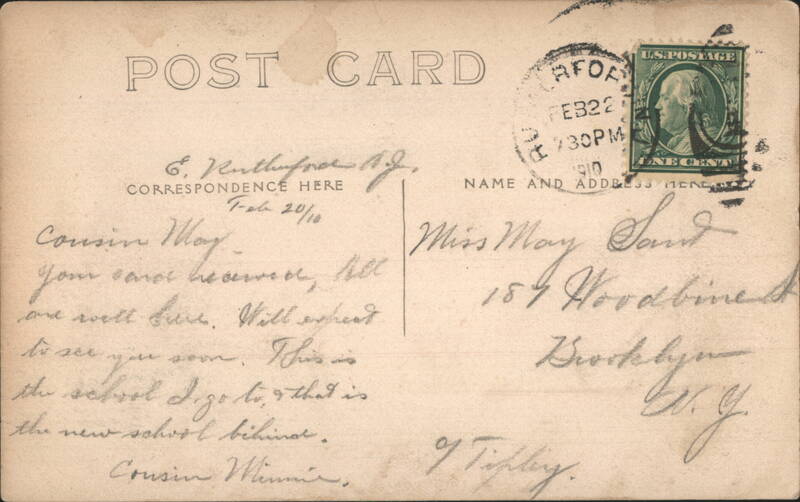 POST CARD
U.S. POSTAGE
ONE CENT
FEB 22
7 30 PM
1910
E. Rutherford N.J.
CORRESPONDENCE HERE
NAME AND ADDRESS HERE
Feb 20/10
Cousin May
Your card received, All
are well here. Will expect
to see you soon. This is
the school I go to, & that is
the new school behind.
Cousin Minnie.
Miss May Sand
187 Woodbine St
Brooklyn
N. Y.